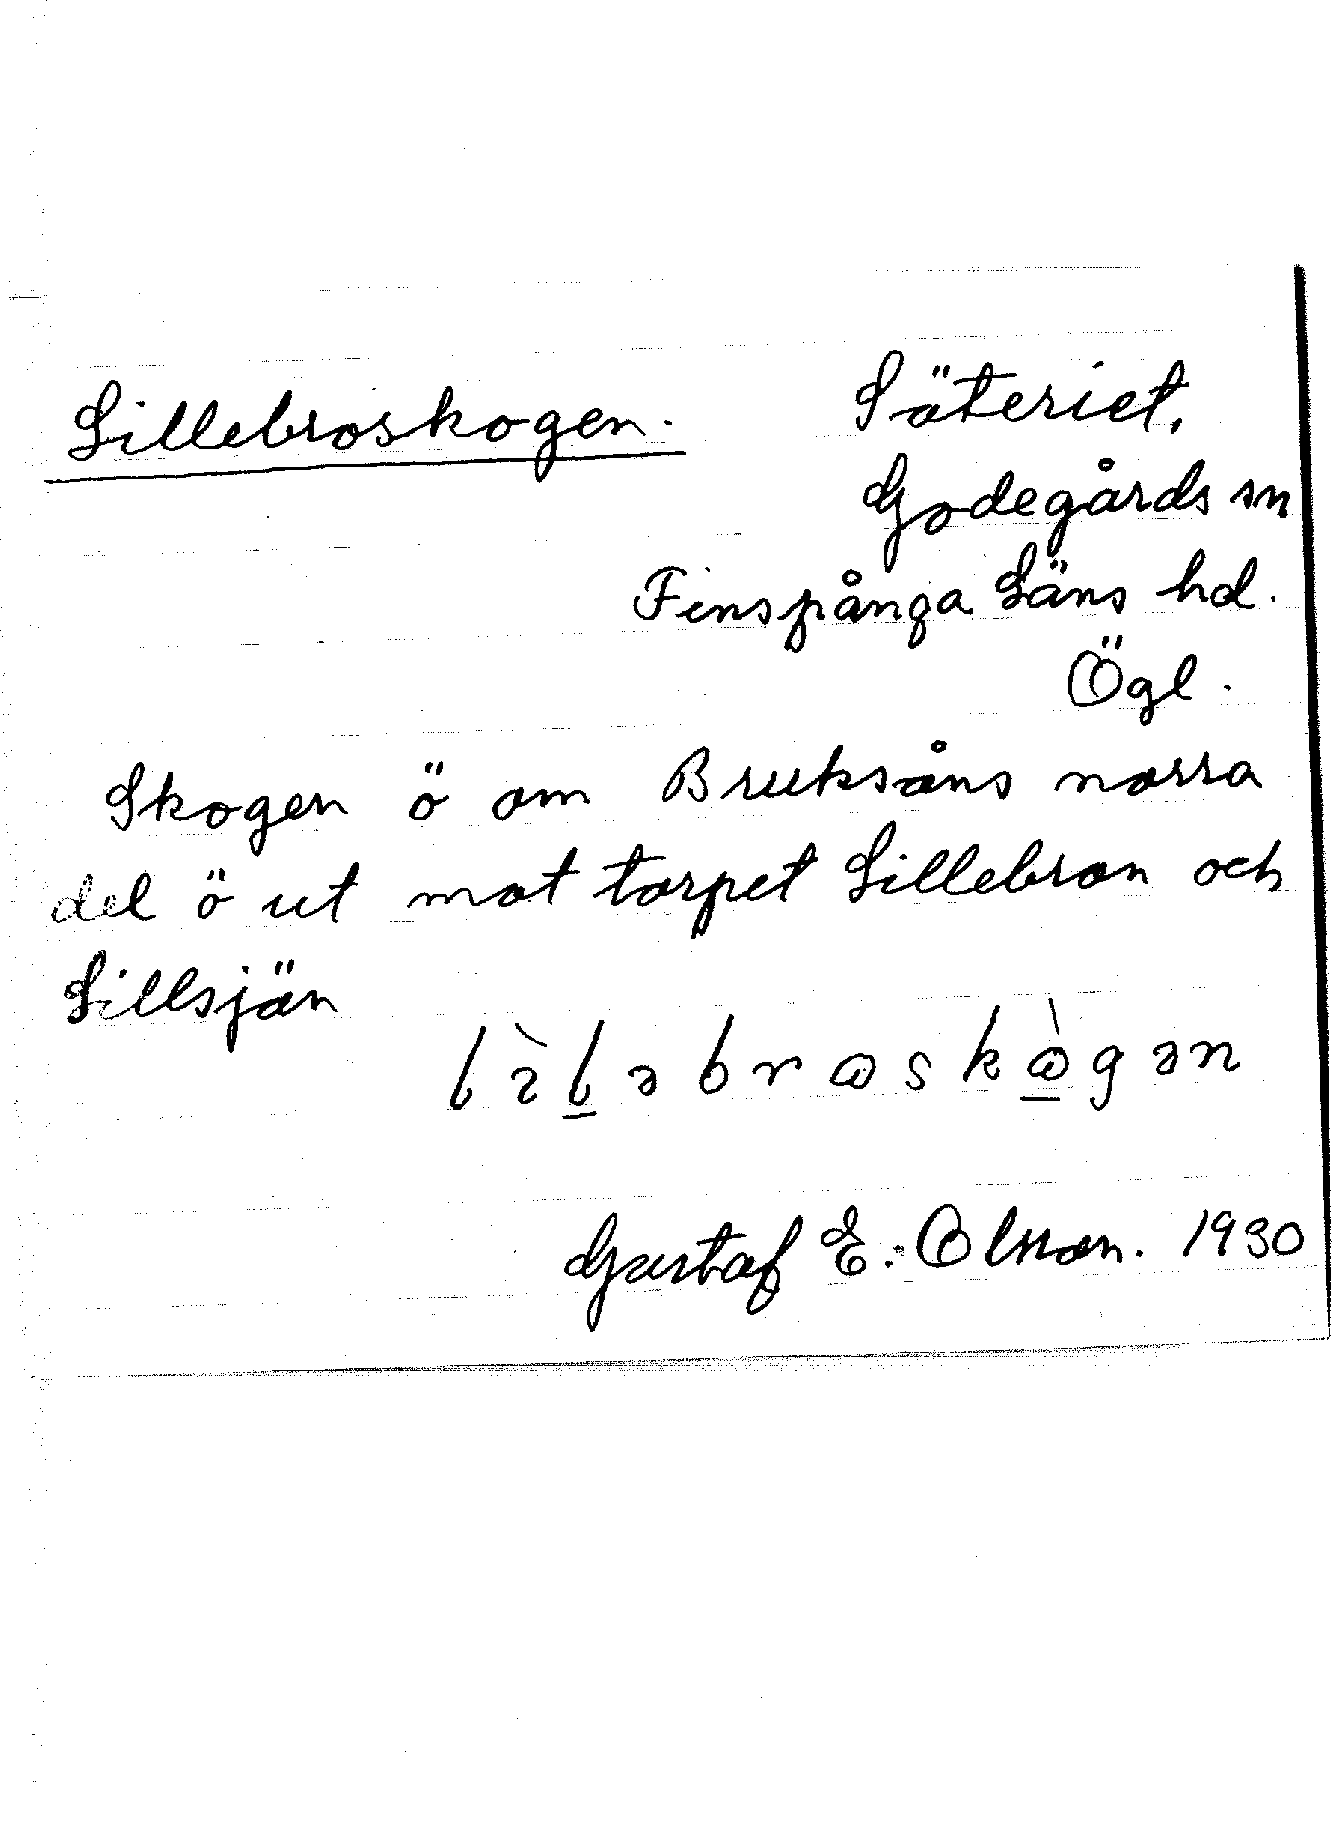 Lillebroskogen.
Säteriet.
Godegårds sn
Finspånga Läns hd.
Ögl.
Skogen ö om Bruksåns norra
del ö ut mot torpet Lillebron och
Lillsjön
Gustaf E. Olsson. 1930